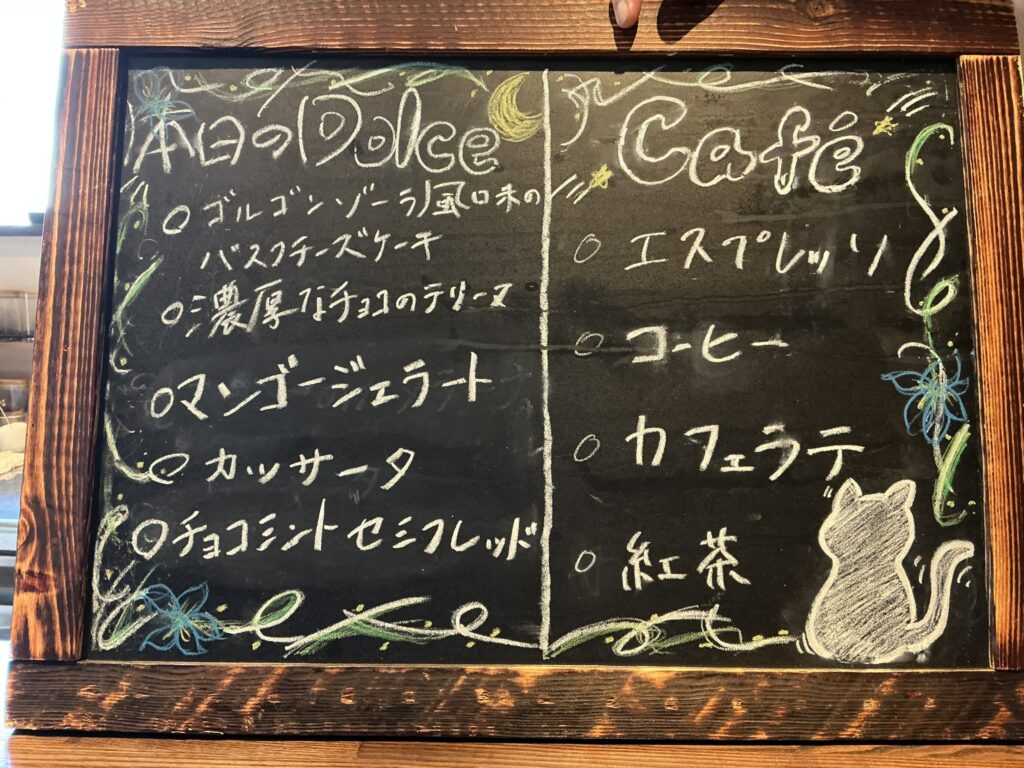 本日のDolce
○ゴルゴンゾーラ風味の
バスクチーズケーキ
○濃厚なチョコのテリーヌ
○マンゴージェラート
○カッサータ
○チョコミントセミフレッド
Café
○エスプレッソ
○コーヒー
○カフェラテ
○紅茶